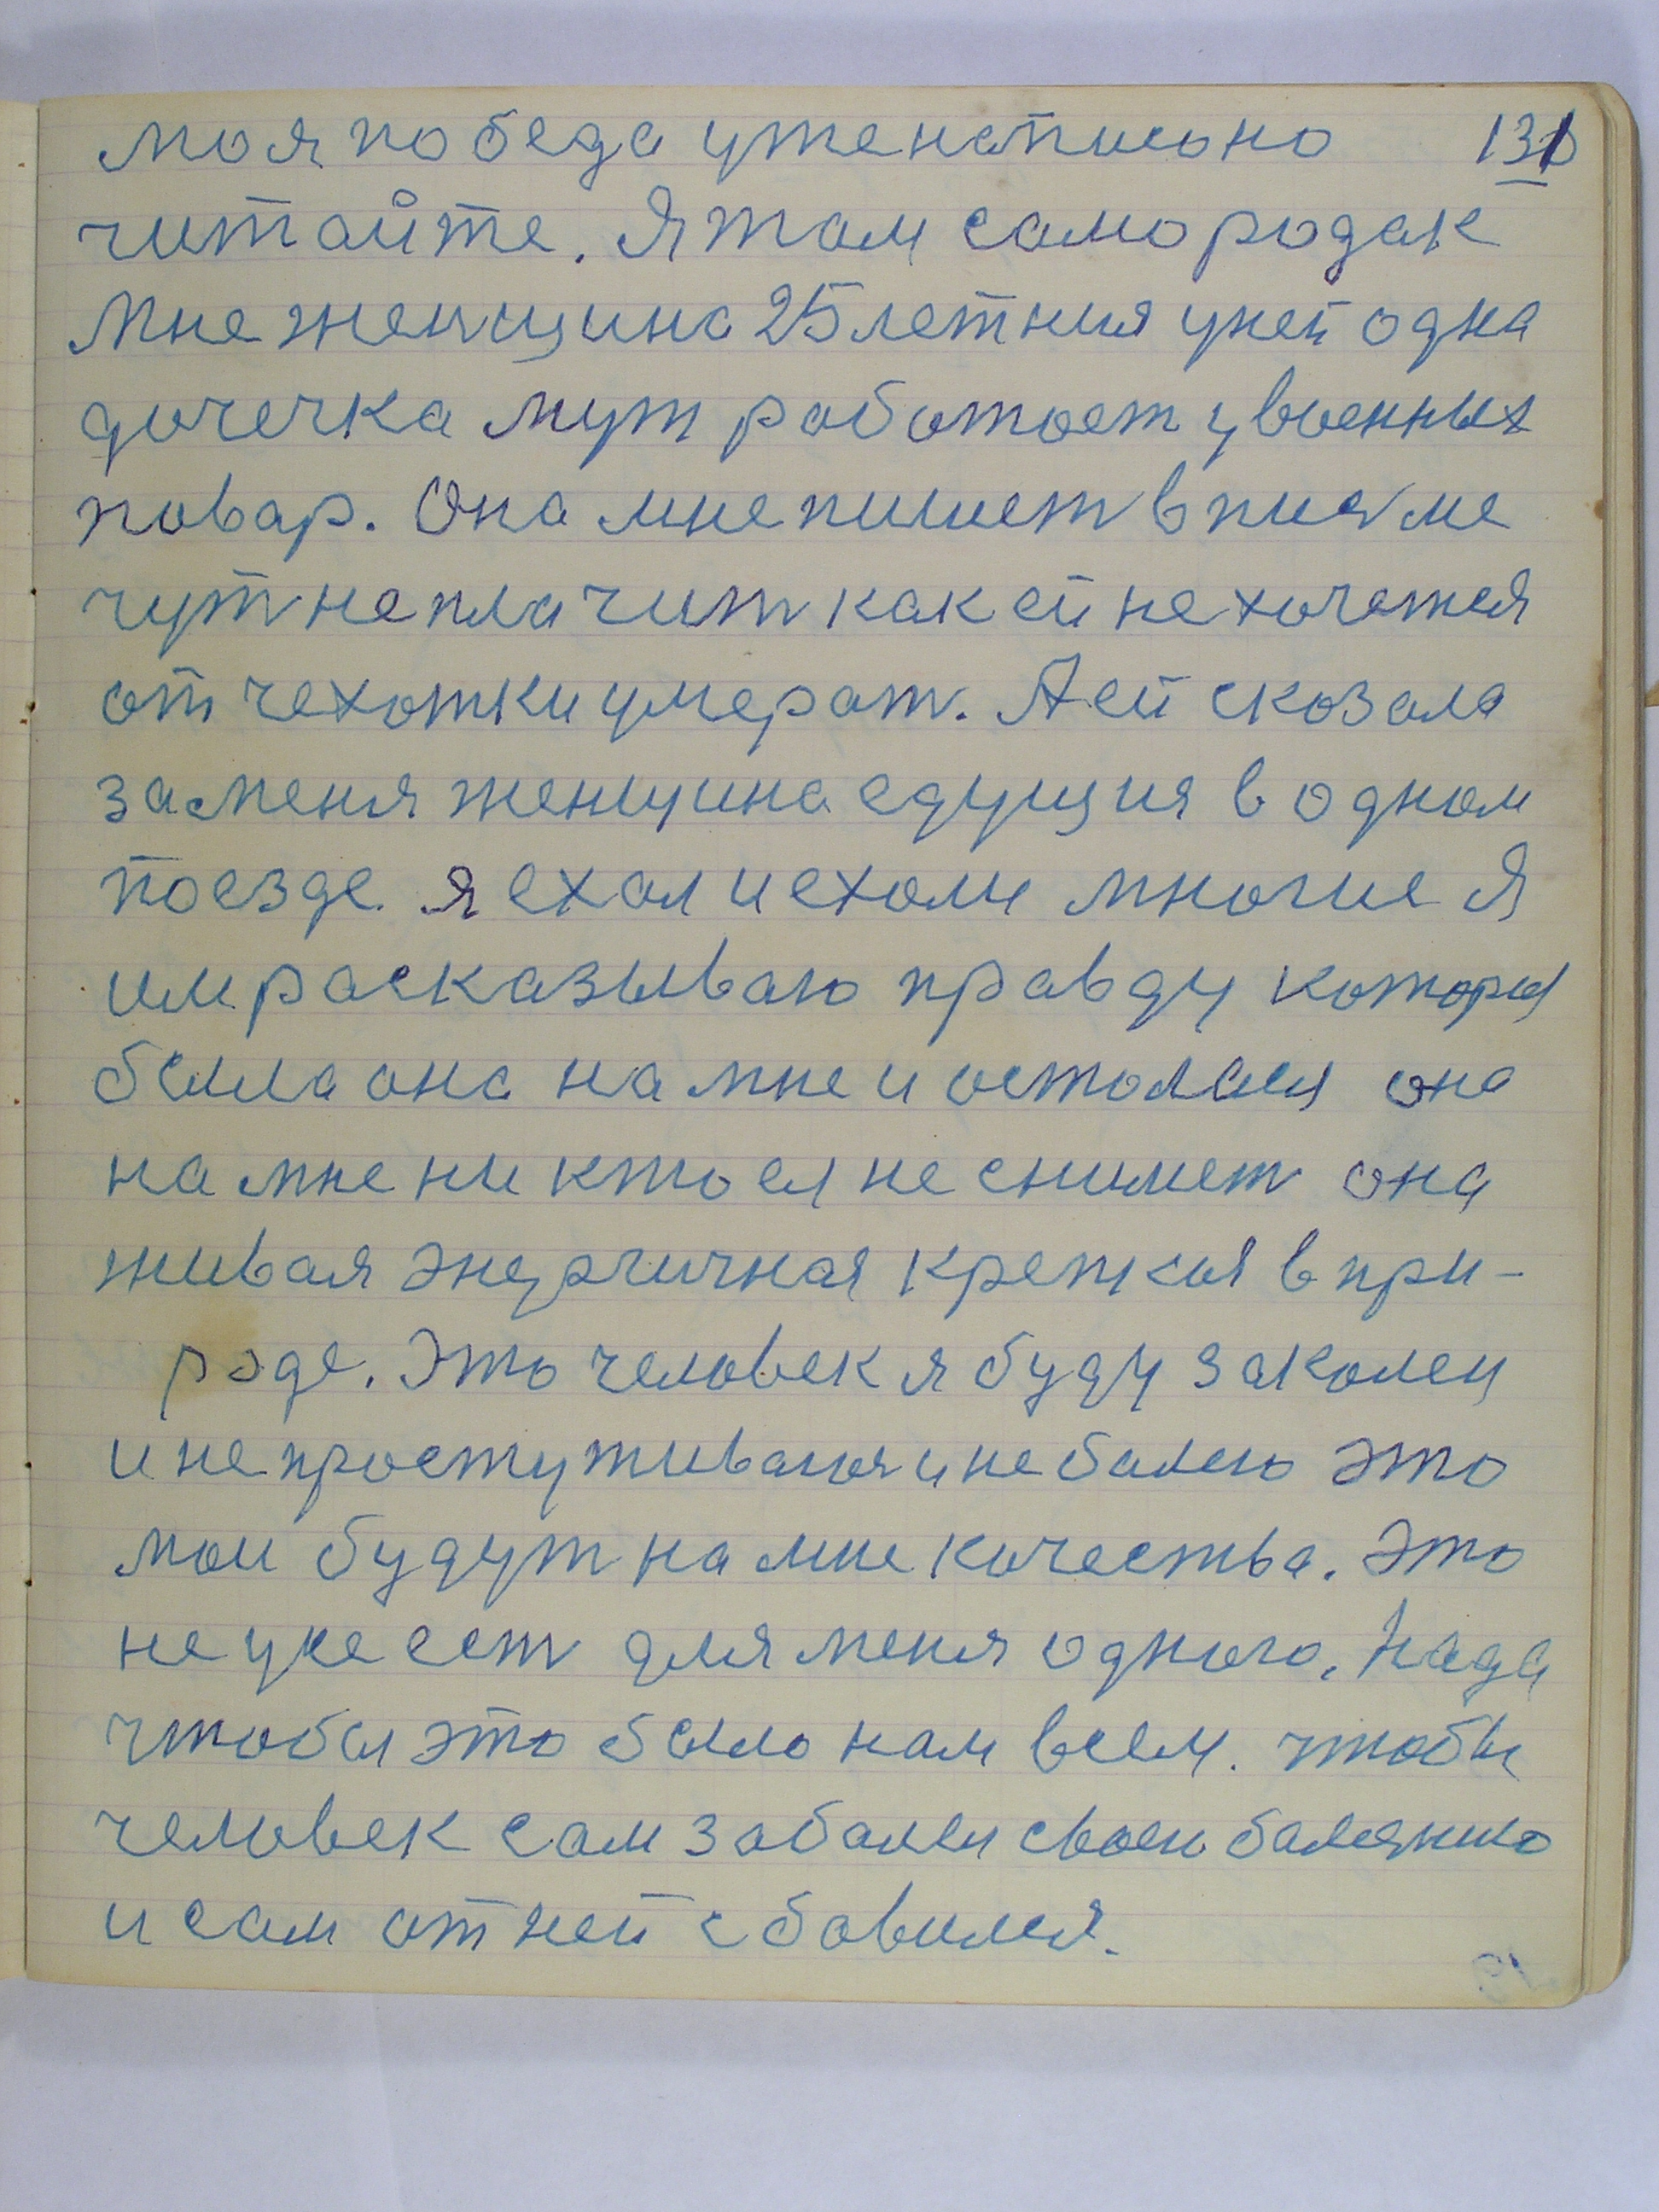 моя победа уже написоно 131
читайте. Я там само родак
Мне женщина 25 летния у ней одна
дочечка муж работает у военных
повар. Она мне пишет в писме
чут не плачит как ей не хочется
от чехотки умерат. А ей сказала
за меня женщина едущия в одном
поезде я ехал и ехали многие Я
им расказываю правду которая
была она на мне и осталася она
на мне ни кто ея не снимет она
живая энергичная крепкая в при-
роде. Это человек я буду заколец
и не простуживаюя и не балею это
мои будут на мне качества. Это
не уже ест для меня одного. Нада
чтобы это было нам всем. чтобы
человек сам забалел своею балезнию
и сам от ней сбавился.